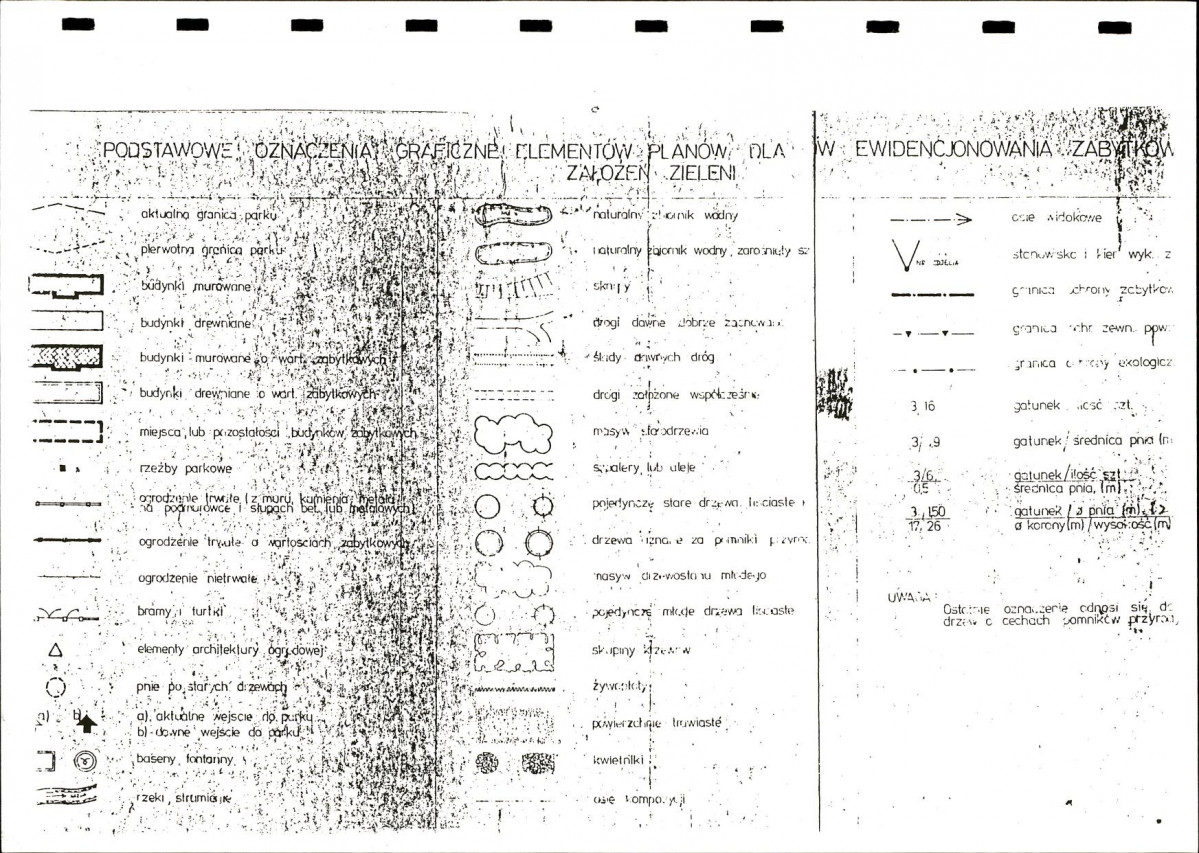 PODSTAWOWE OZNACZENIA GRAFICZNE ELEMENTÓW PLANÓW DLA W EWIDENCJONOWANIA ZABYTKÓW
ZAŁOŻEŃ ZIELENI
aktualna granica parku
pierwotna granica parku
budynki murowane
budynki drewniane
budynki murowane o wart. zabytkowych
budynki drewniane o wart. zabytkowych
miejsca lub pozostałości budynków zabytkowych
rzeźby parkowe
ogrodzenie trwałe (z muru, kamienia, metalu
na podmurówce i słupach bet. lub metalowych)
ogrodzenie trwałe o wartościach zabytkowych
ogrodzenie nietrwałe
bramy i furtki
elementy architektury ogrodowej
pnie po starych drzewach
a) b)
a) aktualne wejście do parku
b) dawne wejście do parku
baseny, fontanny
rzeki, strumienie
naturalny zbiornik wodny
naturalny zbiornik wodny, zarośnięty sz
skarpy
drogi dawne dobrze zachowane
ślady dawnych dróg
drogi założone współcześnie
masyw starodrzewia
szpalery, lub aleje
pojedyncze stare drzewa liściaste i
drzewa uznane za pomniki przyrod
masyw drzewostanu młodego
pojedyncze młode drzewa liściaste
skupiny krzewów
żywopłoty
powierzchnie trawiaste
kwietniki
osie kompozycji
osie widokowe
NR ZDJĘCIA
stanowisko i kier wyk. z
granica ochrony zabytków
granica ochr. zewn. pow.
granica ochrony ekologicz
3 16
gatunek ilość szt.
gatunek/średnica pnia (m
3/6
0,5
gatunek/ilość szt
średnica pnia, (m)
3/150
17, 26
gatunek / ø pnia (m)
ø korony(m)/wysokość(m)
UWAGA:
Ostatnie oznaczenie odnosi się do
drzew o cechach pomników przyrody